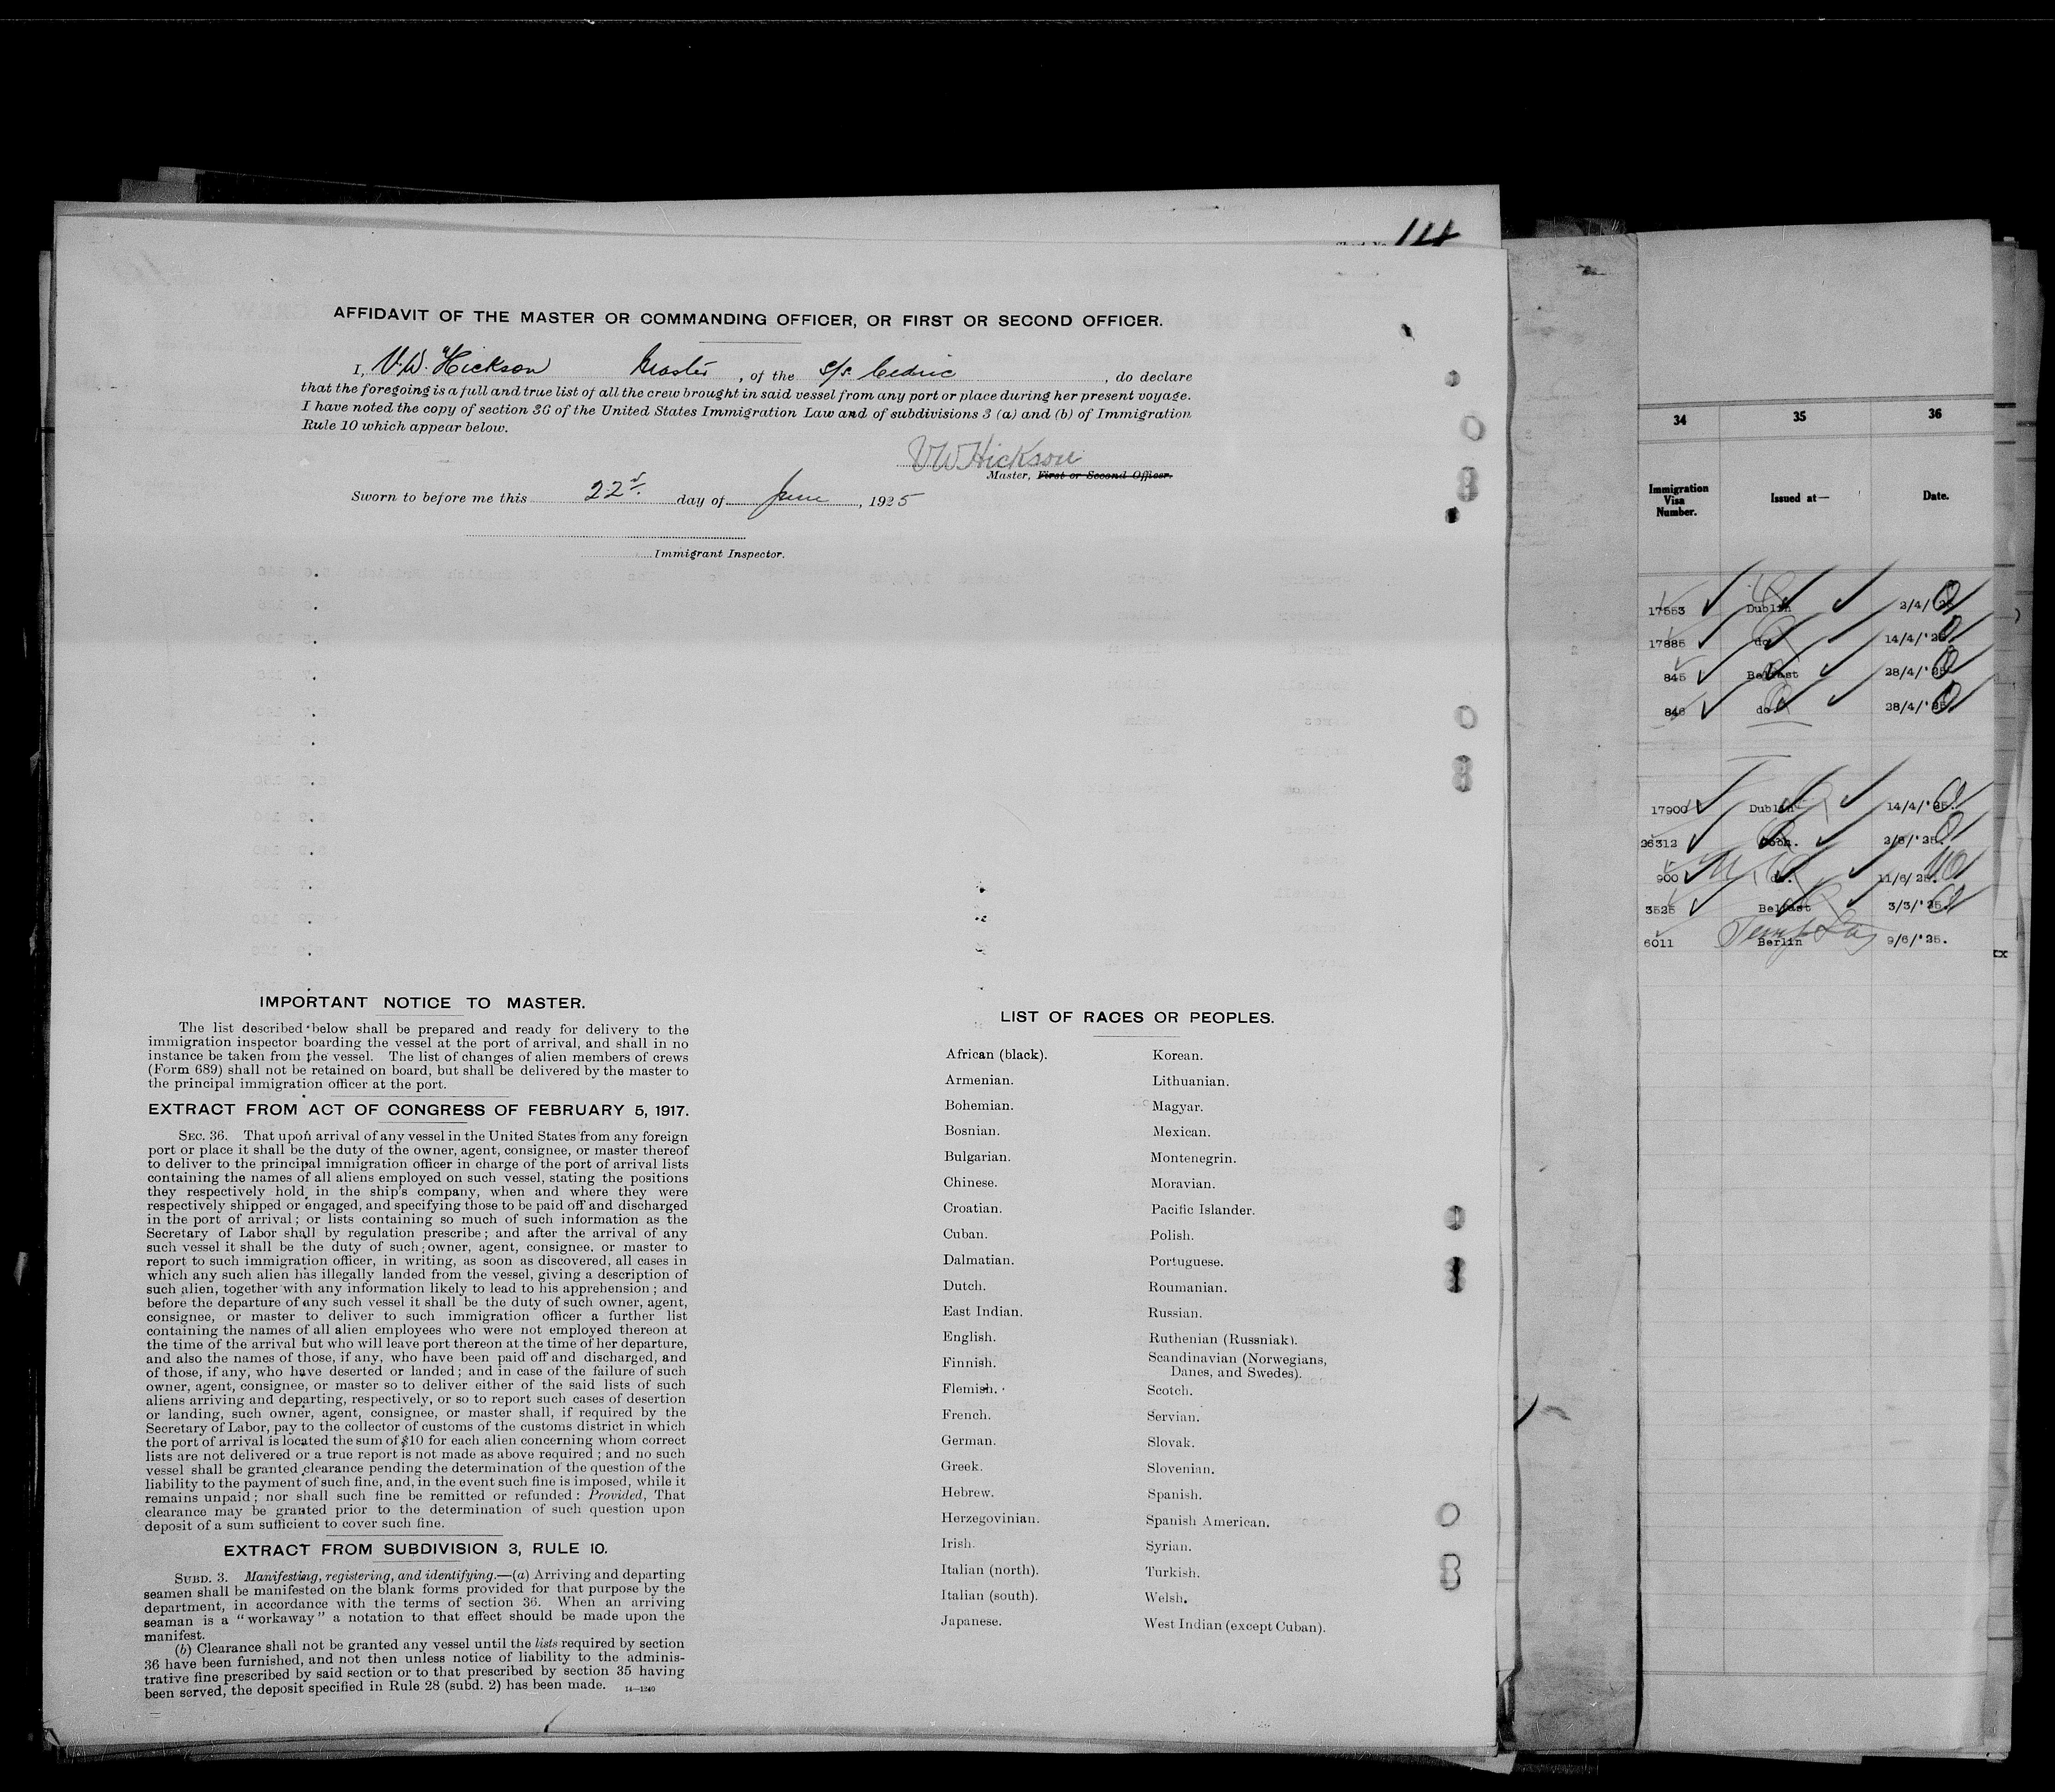 114
AFFIDAVIT OF THE MASTER OR COMMANDING OFFICER, OR FIRST OR SECOND OFFICER.
I, V.W. Hickson Master, of the S/S. Cedric, do declare
that the foregoing is a full and true list of all the crew brought in said vessel from any port or place during her present voyage.
I have noted the copy of section 36 of the United States Immigration Law and of subdivisions 3 (a) and (b) of Immigration
Rule 10 which appear below.
VW Hickson
Master, First or Second Officer.
Sworn to before me this 22d. day of June, 1925
Immigrant Inspector.
IMPORTANT NOTICE TO MASTER.
The list described below shall be prepared and ready for delivery to the
immigration inspector boarding the vessel at the port of arrival, and shall in no
instance be taken from the vessel. The list of changes of alien members of crews
(Form 689) shall not be retained on board, but shall be delivered by the master to
the principal immigration officer at the port.
EXTRACT FROM ACT OF CONGRESS OF FEBRUARY 5, 1917.
SEC. 36. That upon arrival of any vessel in the United States from any foreign
port or place it shall be the duty of the owner, agent, consignee, or master thereof
to deliver to the principal immigration officer in charge of the port of arrival lists
containing the names of all aliens employed on such vessel, stating the positions
they respectively hold in the ship's company, when and where they were
respectively shipped or engaged, and specifying those to be paid off and discharged
in the port of arrival; or lists containing so much of such information as the
Secretary of Labor shall by regulation prescribe; and after the arrival of any
such vessel it shall be the duty of such owner, agent, consignee, or master to
report to such immigration officer, in writing, as soon as discovered, all cases in
which any such alien has illegally landed from the vessel, giving a description of
such alien, together with any information likely to lead to his apprehension; and
before the departure of any such vessel it shall be the duty of such owner, agent,
consignee, or master to deliver to such immigration officer a further list
containing the names of all alien employees who were not employed thereon at
the time of the arrival but who will leave port thereon at the time of her departure,
and also the names of those, if any, who have been paid off and discharged, and
of those, if any, who have deserted or landed; and in case of the failure of such
owner, agent, consignee, or master so to deliver either of the said lists of such
aliens arriving and departing, respectively, or so to report such cases of desertion
or landing, such owner, agent, consignee, or master shall, if required by the
Secretary of Labor, pay to the collector of customs of the customs district in which
the port of arrival is located the sum of $10 for each alien concerning whom correct
lists are not delivered or a true report is not made as above required; and no such
vessel shall be granted clearance pending the determination of the question of the
liability to the payment of such fine, and, in the event such fine is imposed, while it
remains unpaid; nor shall such fine be remitted or refunded: Provided, That
clearance may be granted prior to the determination of such question upon
deposit of a sum sufficient to cover such fine.
EXTRACT FROM SUBDIVISION 3, RULE 10.
SUBD. 3. Manifesting, registering, and identifying.—(a) Arriving and departing
seamen shall be manifested on the blank forms provided for that purpose by the
department, in accordance with the terms of section 36. When an arriving
seaman is a "workaway" a notation to that effect should be made upon the
manifest.
(b) Clearance shall not be granted any vessel until the lists required by section
36 have been furnished, and not then unless notice of liability to the adminis-
trative fine prescribed by said section or to that prescribed by section 35 having
been served, the deposit specified in Rule 28 (subd. 2) has been made. 14—1240
LIST OF RACES OR PEOPLES.
African (black). Korean.
Armenian. Lithuanian.
Bohemian. Magyar.
Bosnian. Mexican.
Bulgarian. Montenegrin.
Chinese. Moravian.
Croatian. Pacific Islander.
Cuban. Polish.
Dalmatian. Portuguese.
Dutch. Roumanian.
East Indian. Russian.
English. Ruthenian (Russniak).
Finnish. Scandinavian (Norwegians,
Danes, and Swedes).
Flemish. Scotch.
French. Servian.
German. Slovak.
Greek. Slovenian.
Hebrew. Spanish.
Herzegovinian. Spanish American.
Irish. Syrian.
Italian (north). Turkish.
Italian (south). Welsh.
Japanese. West Indian (except Cuban).
34 35 36
Immigration Visa Number. Issued at— Date.
17553 Dublin 2/4/'25
17885 do. 14/4/'25
845 Belfast 28/4/'25
846 do. 28/4/'25
17900 Dublin 14/4/'25.
26312 2/6/'25.
900 do. 11/6/25.
3525 Belfast 3/3/'25.
6011 Berlin 9/6/'25.